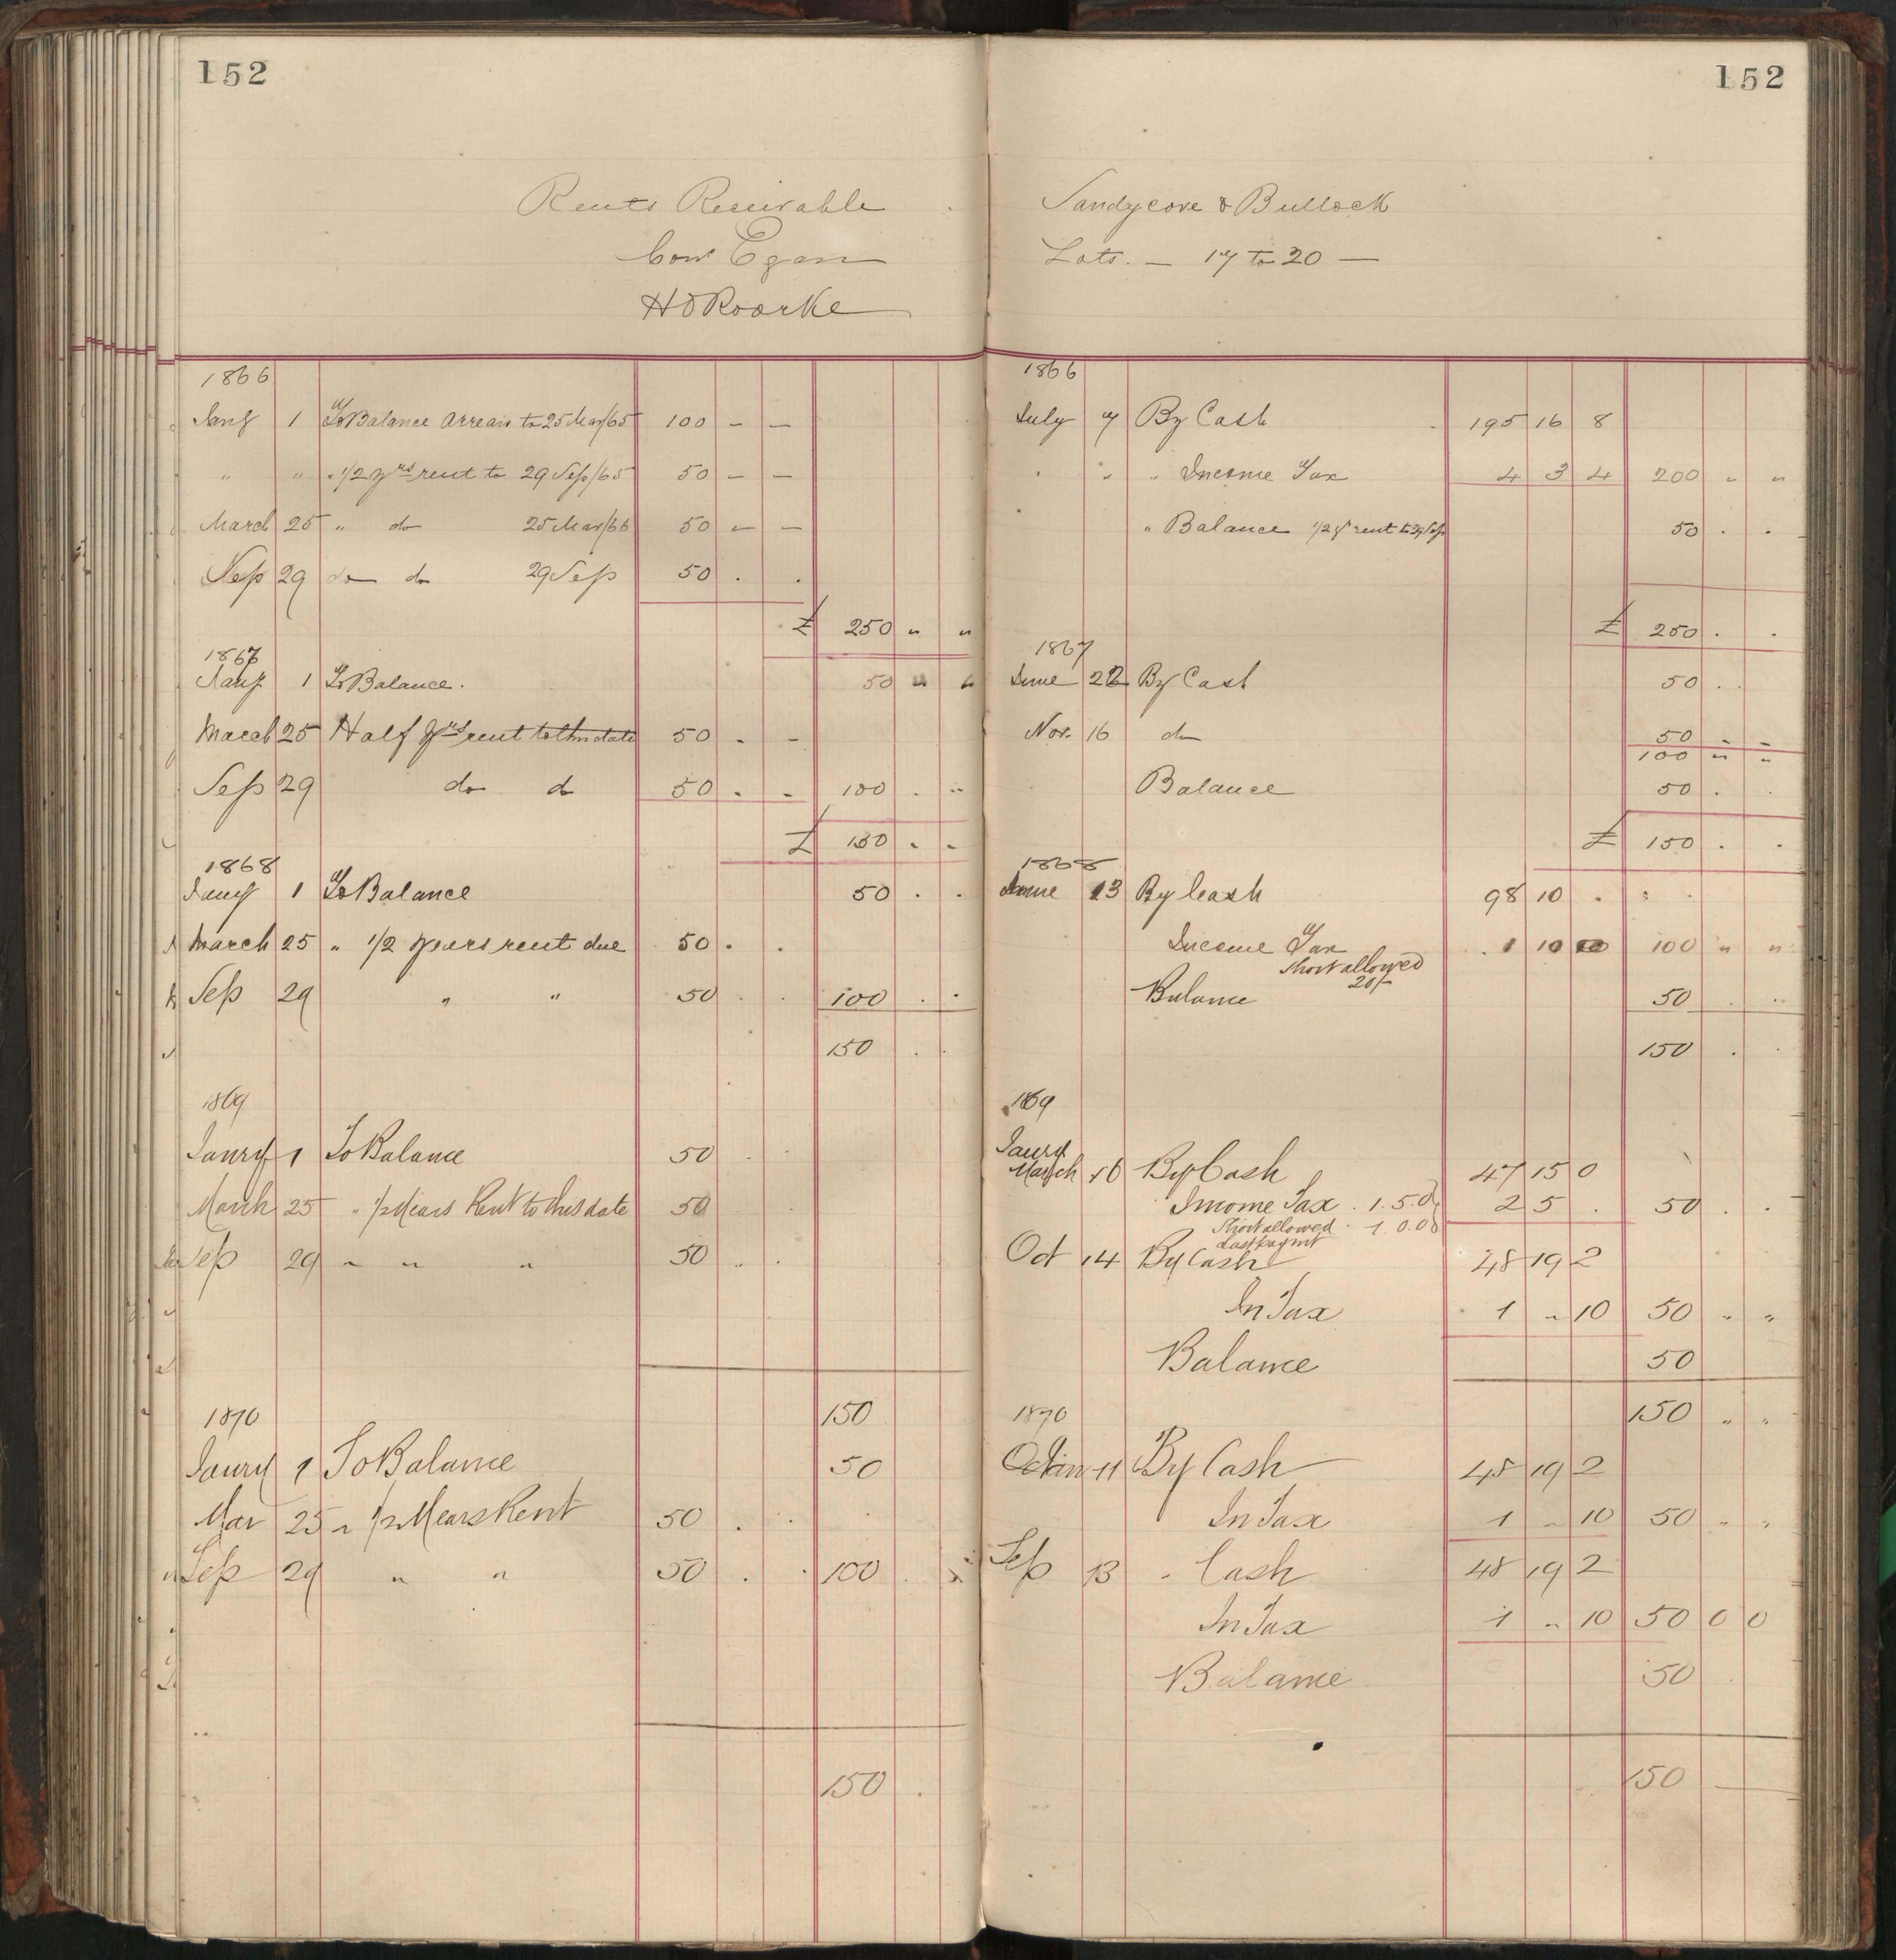 152
Rents Receivable
Egan
H O Roorke
1866
Jany 1 To Balance Arrears to 25 Mar/65 100 - -
" " " 1/2 yrs rent to 29 Sep/65 50 - -
March 25 " do 25 Mar/66 50 - -
Sep 29 do do 29 Sep 50 . .
£ 250 " "
1867
Jany 1 To Balance. 50 " "
March 25 Half yrs rent to this date 50 . -
Sep 29 do do 50 . - 100 . "
£ 150 . -
1868
Jany 1 To Balance 50 . .
March 25 " 1/2 years rent due 50 . .
Sep 29 " " 50 . . 100 . .
150 . .
1869
Janry 1 To Balance 50 . .
March 25 " 1/2 Years Rent to this date 50
Sep 29 " " " 50 . .
150
1870
Janry 1 To Balance 50
Mar 25 " 1/2 Years Rent 50 . .
Sep 29 " " 50 . . 100 .
150 .
152
Sandycove & Bullock
Lots. — 17 to 20 —
1866
July 7 By Cash 195 16 8
" " " Income Tax 4 3 4 200 " "
" Balance 1/2 yr rent to 29 Sep 50 . .
£ 250 . .
1867
June 22 By Cash 50 . .
Nov. 16 do 50 - -
100 " "
Balance 50 . .
£ 150 . .
1868
June 13 By Cash 98 10 .
Income Tax 1 10 100 " "
Short allowed
20/-
Balance 50 . .
150 . .
1869
Janry
March 16 By Cash 47 15 0
Income Tax . 1.5.0 2 5 . 50 . .
Short allowed . 1.0.0
Last paymt
Oct 14 By Cash 48 19 2
In Tax 1 " 10 50 " "
Balance 50
150 " "
1870
11 By Cash 48 19 2
In Tax 1 " 10 50 " "
Sep 13 " Cash 48 19 2
In Tax 1 " 10 50 0 0
Balance 50
150